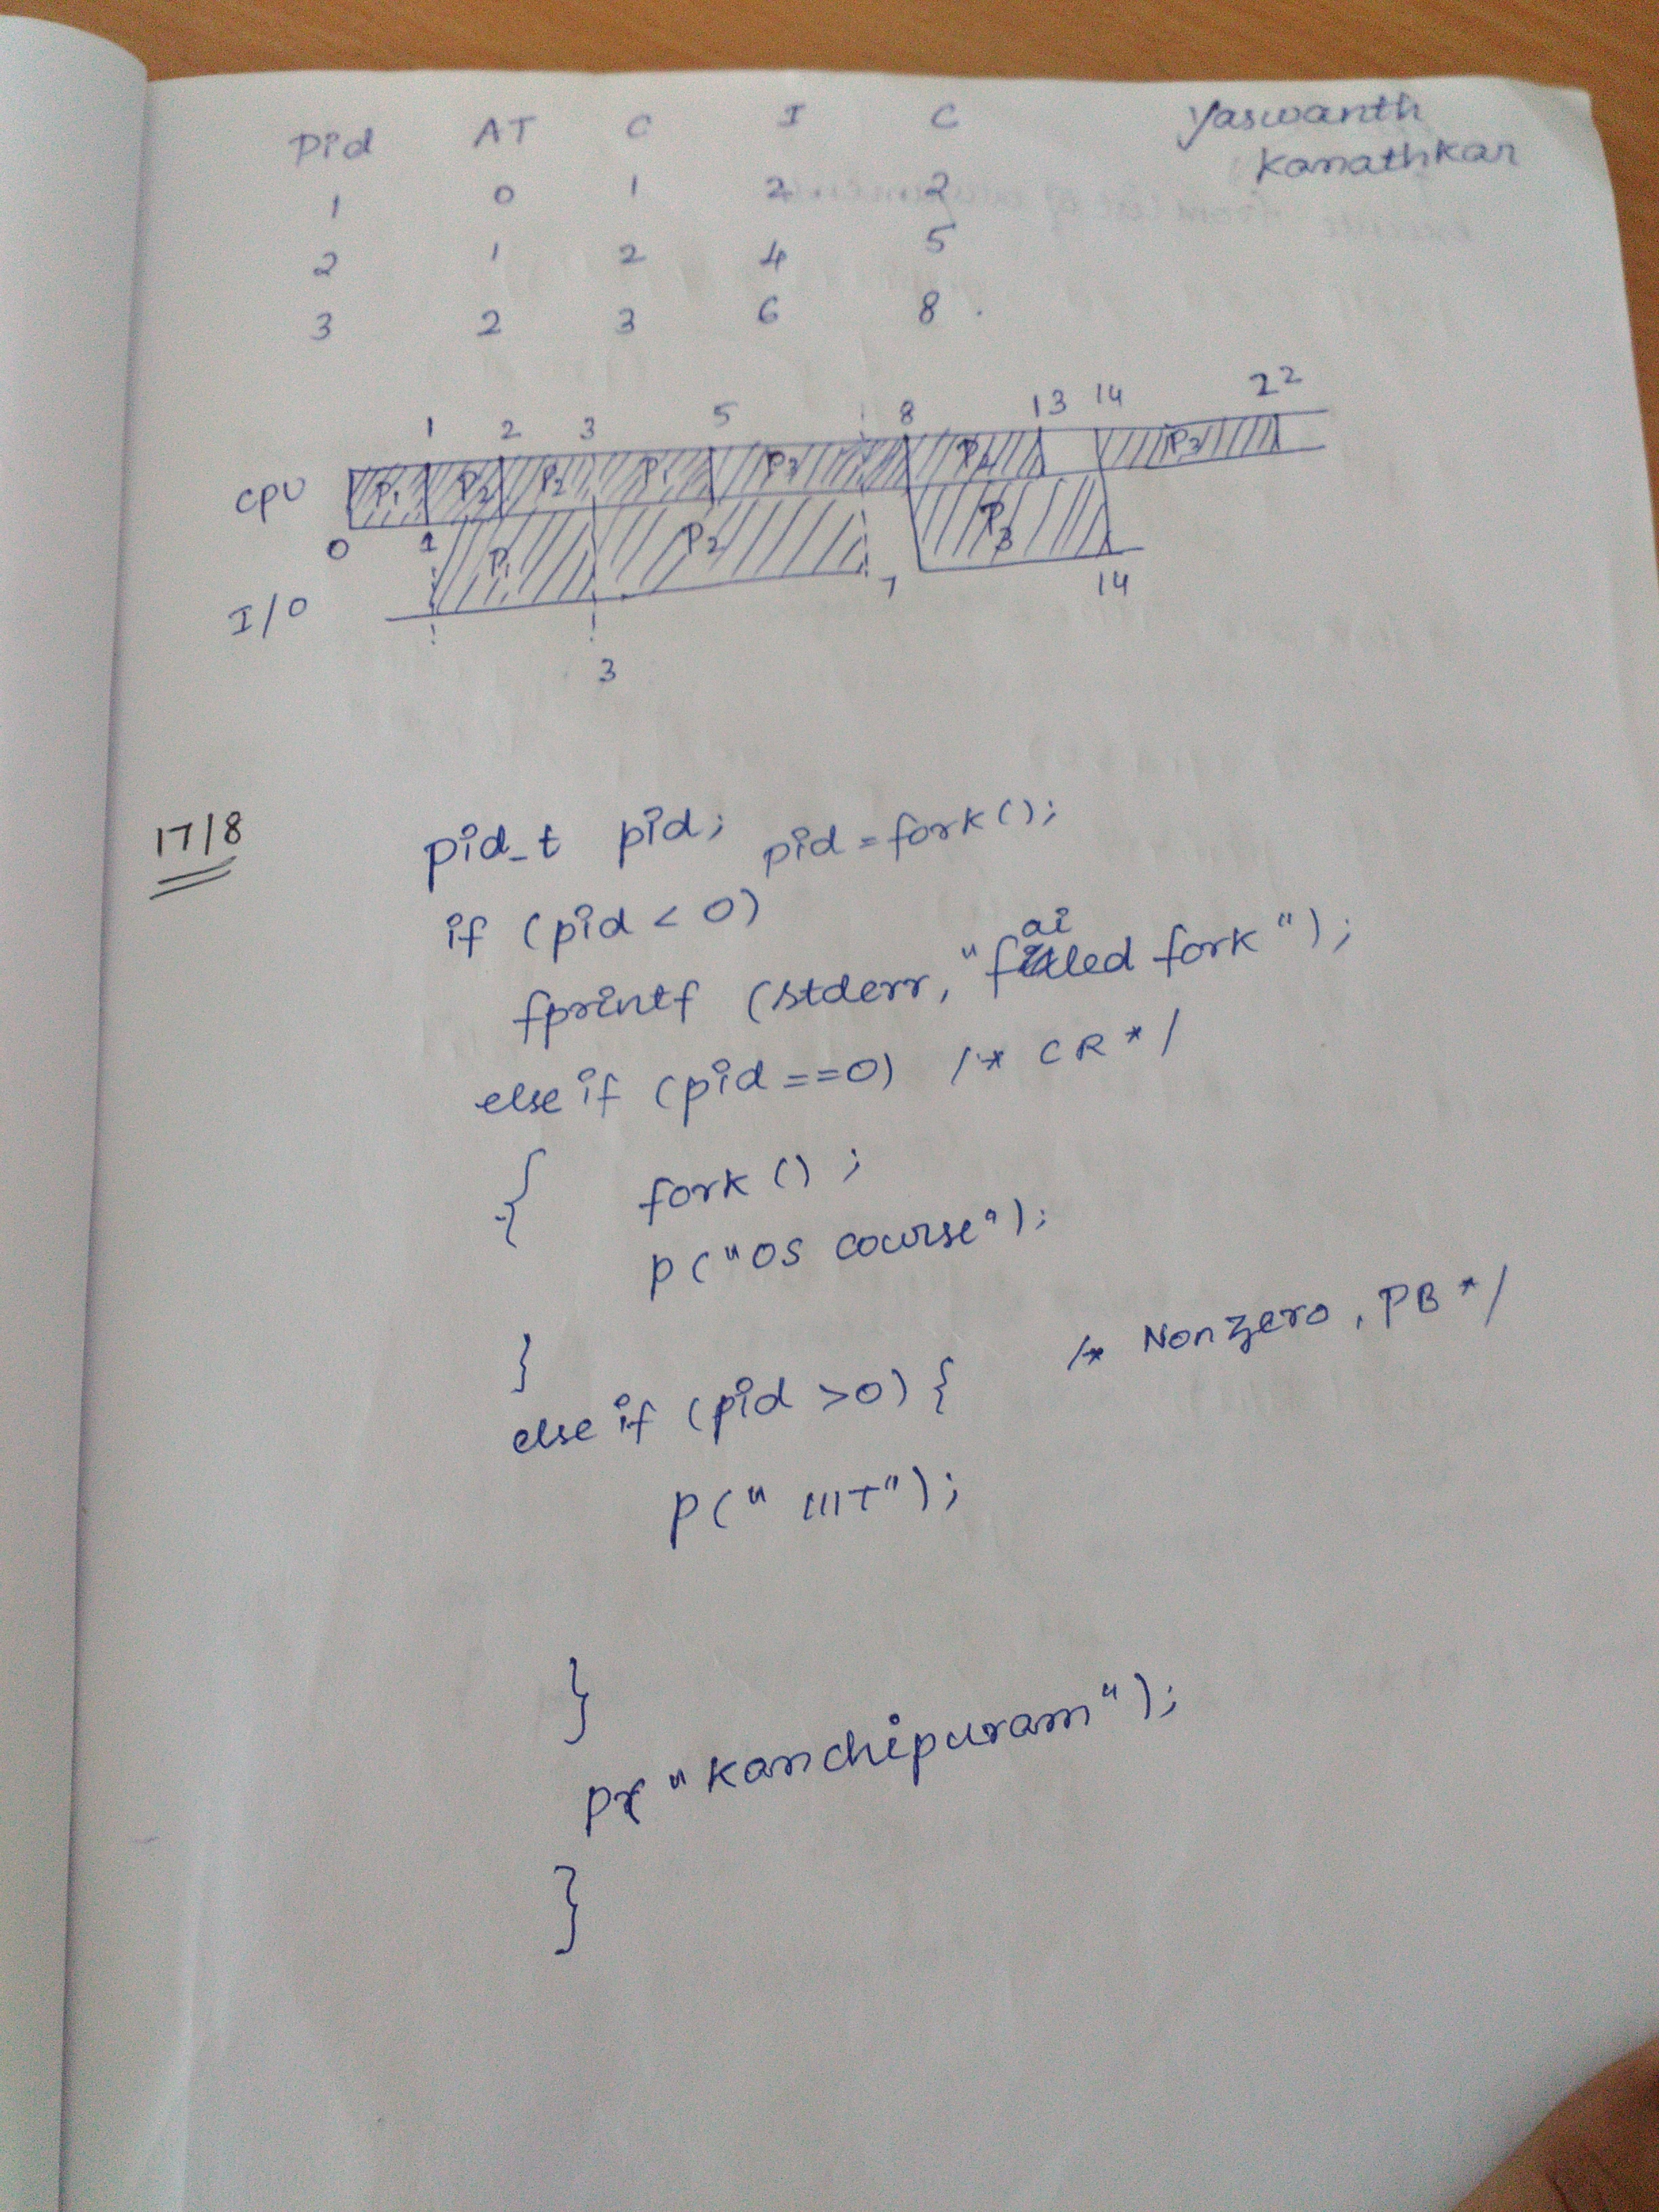 Pid AT C I C Yaswanth
Kanathkar
1 0 1 2 2
2 1 2 4 5
3 2 3 6 8 .
1 2 3 5 8 13 14 22
CPU P1 P2 P2 P1 P3 P2 P3
0 1
I/O P1 P2 P3
3 7 14
17/8
pid_t pid; pid = fork();
if (pid < 0)
fprintf (stderr, "failed fork");
else if (pid ==0) /* CR */
{ fork ();
p("OS course");
}
else if (pid >0) { /* Nonzero, PB */
p(" IIIT");
}
p("Kanchipuram");
}